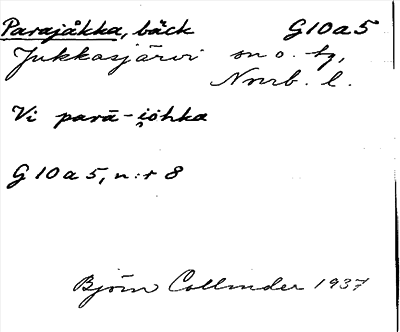 Parajåkka, bäck G10a5
Jukkasjärvi sn o. tg,
Norrb. l.
Vi parā-i̯ōhka
G10a5, n:r 8
Björn Collinder 1937